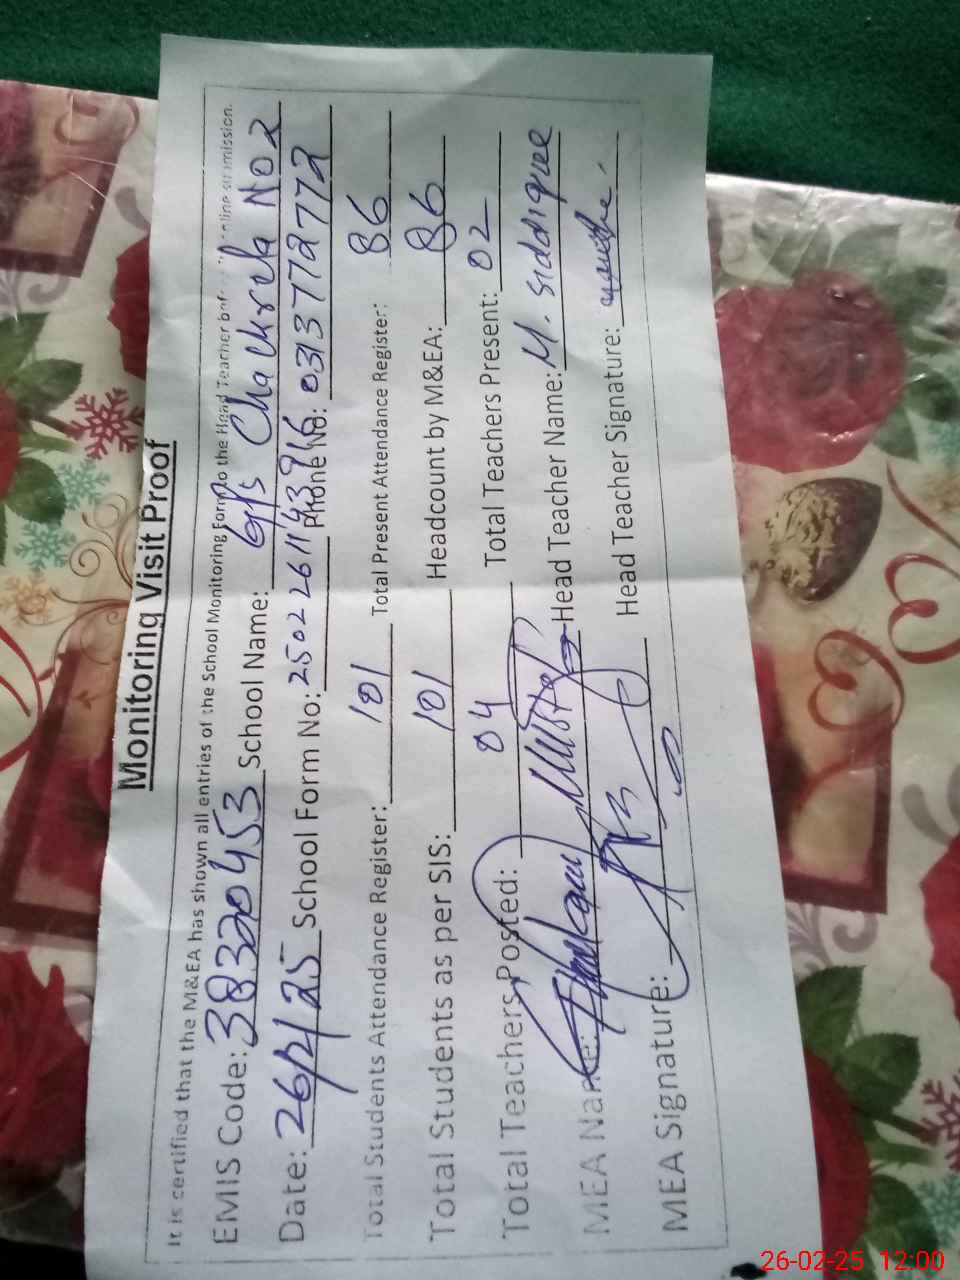 Monitoring Visit Proof
It is certified that the M&EA has shown all entries of the School Monitoring Form to the Head Teacher before online submission.
EMIS Code: 38320453 School Name: G/s Chachrela No 2
Date: 26/2/25 School Form No: 2502261143916 Phone No: 03137727772
Total Students Attendance Register: 101 Total Present Attendance Register: 86
Total Students as per SIS: 101 Headcount by M&EA: 86
Total Teachers Posted: 04 Total Teachers Present: 02
MEA Name: Head Teacher Name: M. Siddiquee
MEA Signature: Head Teacher Signature:
26-02-25 12:00